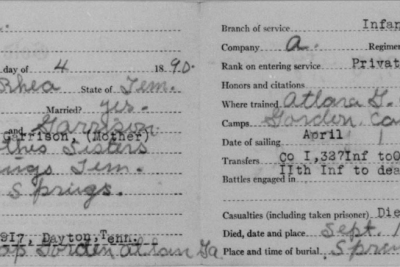 day of 4 1890.
Rhea State of Tenn.
Married? yes.
and Garrison
Garrison, (Mother)
Sisters
ings Tenn.
Springs.
917, Dayton, Tenn.
Gorden atlan Ga
Branch of service Infan
Company a. Regimen
Rank on entering service Privat
Honors and citations
Where trained Atlana G.
Camps Gorden, Ca
Date of sailing April 1
Transfers Co I, 327Inf to
11th Inf to dea
Battles engaged in
Casualties (including taken prisoner) Die
Died, date and place Sept. 1
Place and time of burial Sprin